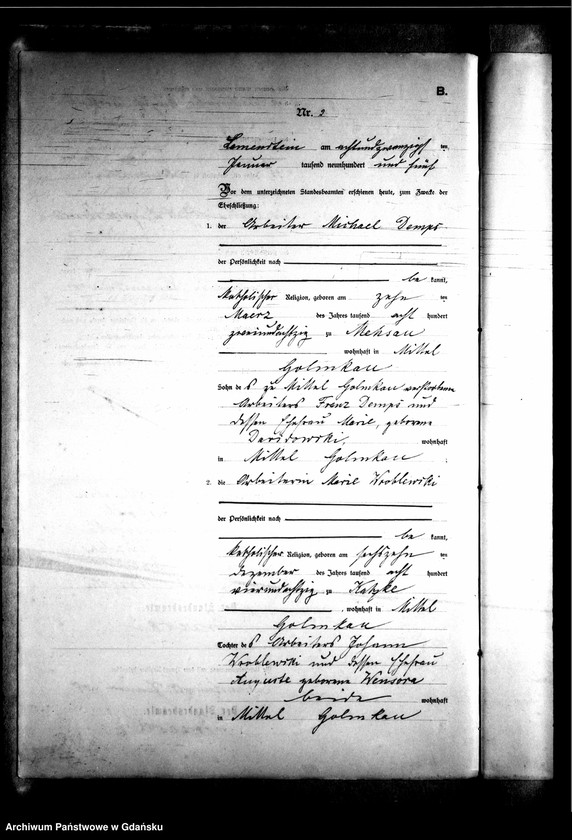 B.
Nr. 2
Lamenstein am achtundzwanzigsten
Januar tausend neunhundert und fünf
Vor dem unterzeichneten Standesbeamten erschienen heute, zum Zwecke der
Eheschließung:
1. der Arbeiter Michael Demps
der Persönlichkeit nach
be kannt,
katholischer Religion, geboren am zehn ten
Maerz des Jahres tausend acht hundert
zweiundachtzig zu Mehsau
wohnhaft in Mittel
Golmkau
Sohn des zu Mittel Golmkau verstorbenen
Arbeiters Franz Demps und
dessen Ehefrau Marie, geborene
Davidowski, wohnhaft
in Mittel Golmkau
2. die Arbeiterin Marie Wroblewski
der Persönlichkeit nach
be kannt,
katholischer Religion, geboren am sechszehn ten
Dezember des Jahres tausend acht hundert
vierundachtzig zu Katzke
, wohnhaft in Mittel
Golmkau
Tochter des Arbeiters Johann
Wroblewski und dessen Ehefrau
Auguste geborene Wensora
beide wohnhaft
in Mittel Golmkau
Archiwum Państwowe w Gdańsku